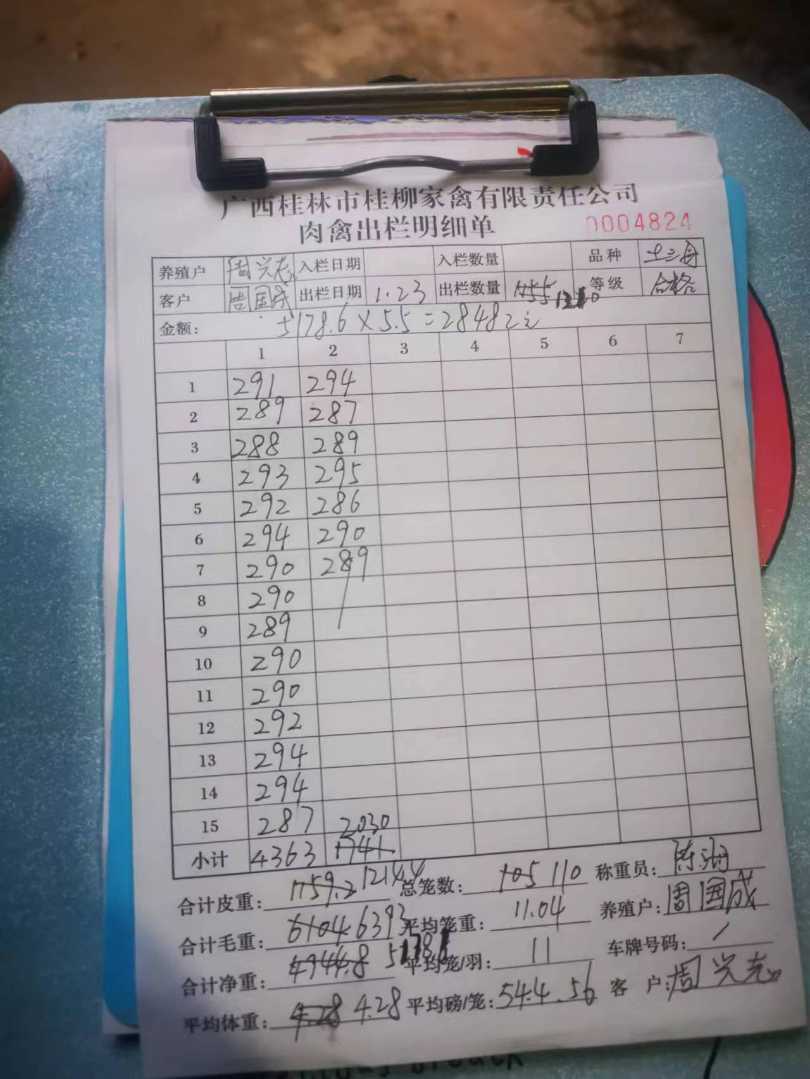 广西桂林市桂柳家禽有限责任公司
肉禽出栏明细单 0004824
养殖户 周兴志 入栏日期 入栏数量 品种 土三
客户 周国成 出栏日期 1.23 出栏数量 1210 等级 合格
金额: 5178.6×5.5=28482元
1 2 3 4 5 6 7
1 291 294
2 289 287
3 288 289
4 293 295
5 292 286
6 294 290
7 290 289
8 290
9 289
10 290
11 290
12 292
13 294
14 294
15 287 2030
小计 4363 1741
合计皮重: 1159.2 1214.4 总笼数: 105 110 称重员: 陈
合计毛重: 6104 6393 平均笼重: 11.04 养殖户: 周国成
合计净重: 4944.8 平均笼/羽: 11 车牌号码: /
平均体重: 4.28 4.28 平均磅/笼: 54.4.56 客 户: 周兴志